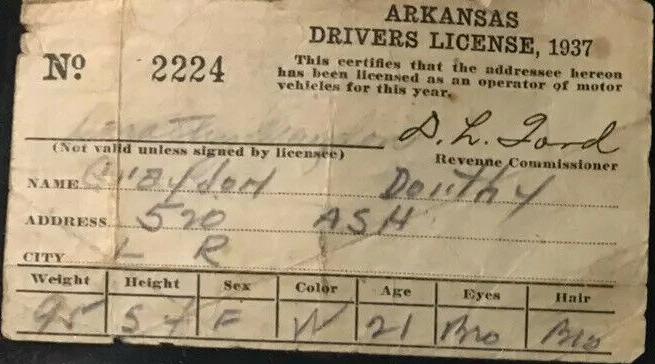 ARKANSAS
DRIVERS LICENSE, 1937
No. 2224
This certifies that the addressee hereon
has been licensed as an operator of motor
vehicles for this year.
D. L. Ford
(Not valid unless signed by licensee)
Revenue Commissioner
NAME
ADDRESS 520 ASH
CITY L R
Weight Height Sex Color Age Eyes Hair
95 5 4 F W 21 Bro Bro